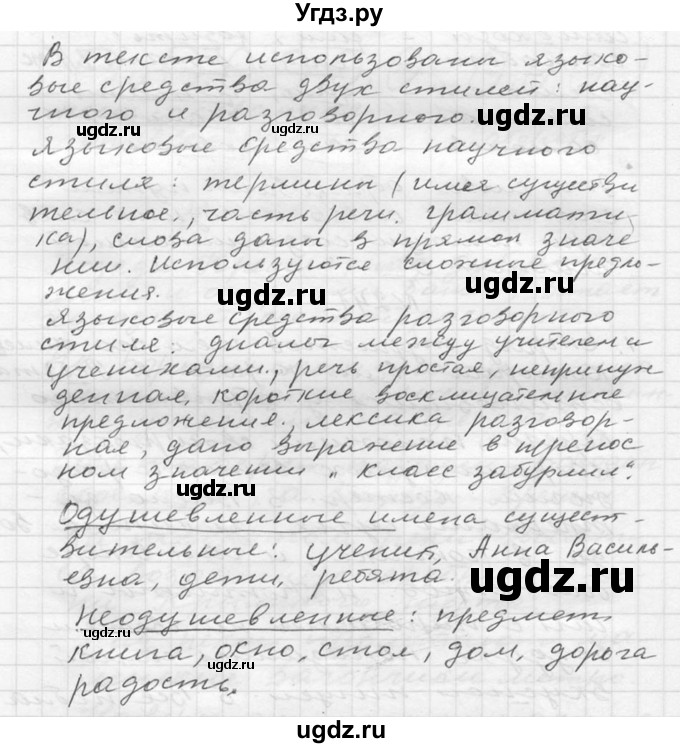 Угдз.ру
В тексте использованы языко-
вые средства двух стилей: нау-
чного и разговорного.
ugdz.ru ugdz.ru
Языковые средства научного
стиля: термины (имя существи
тельное., часть речи. граммати
ugdz.ru
ка), слова даны в прямом значе
нии. Используются сложные предло-
жения.
ugdz.ru ugdz.ru
Языковые средства разговорного
стиля: диалог между учителем и
учениками., речь простая, непринуж
денная, короткие восклицательные
ugdz.ru
предложения., лексика разговор-
ная, дано выражение в перенос
ном значении „класс забурлил".
ugdz.ru
Одушевленные имена сущест-
вительные: ученик, Анна Василь-
ugdz.ru
евна, дети, ребята.
ugdz.ru
Неодушевленные: предмет,
ugdz.ru
книга, окно, стол, дом, дорога
радость.
ugdz.ru
ugdz.ru